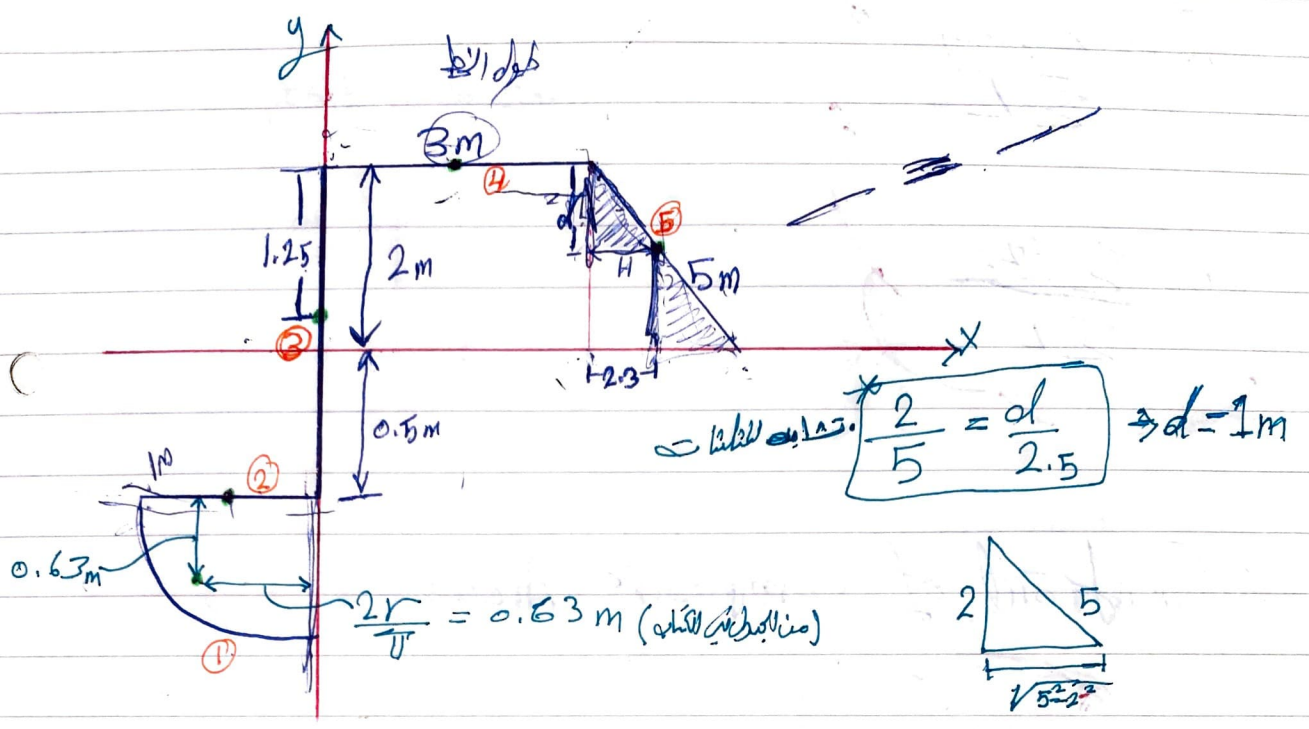 y
طول الخط
3m
④
d
⑤
1.25
2m
H
5m
③
x
2.3
0.5m
تشابه المثلثات
2/5 = d/2.5 ⇒ d = 1m
1m
②
0.63m
2r/π = 0.63 m (من الجدول في الكتاب)
①
2
5
√5²-2²